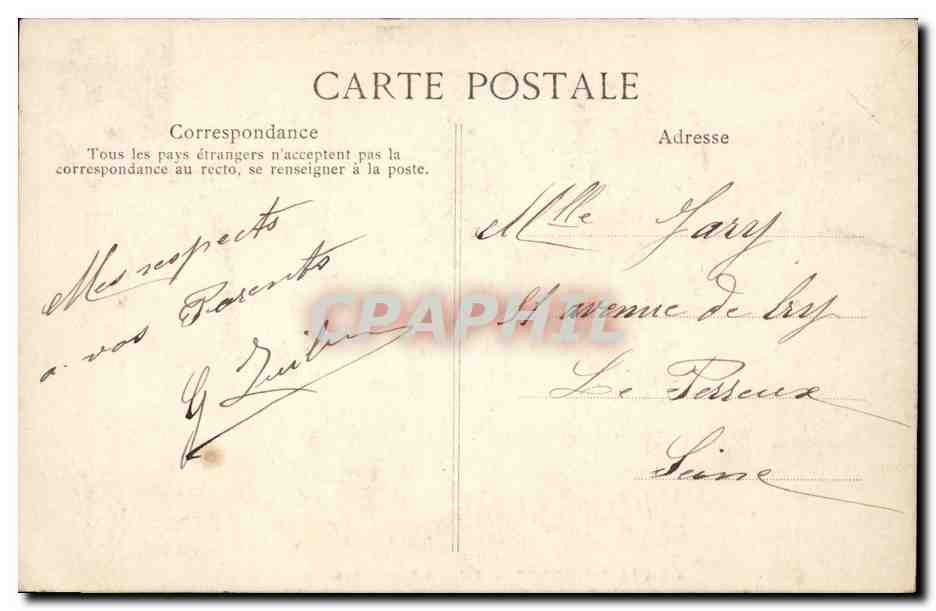 CARTE POSTALE
Correspondance
Tous les pays étrangers n'acceptent pas la
correspondance au recto, se renseigner à la poste.
Mes respects
a vos Parents
G
Adresse
Mlle Jary
avenue de Bry
Le Perreux
Seine
CPAPHIL